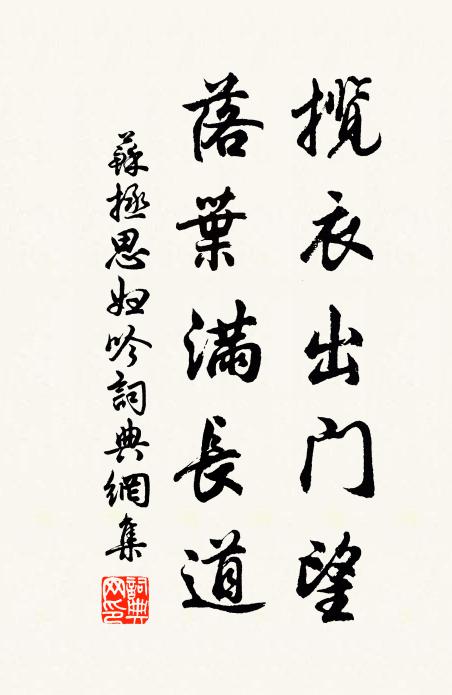 揽衣出门望
落葉滿長道
蘇拯思妇吟詞典網集
詞典網印